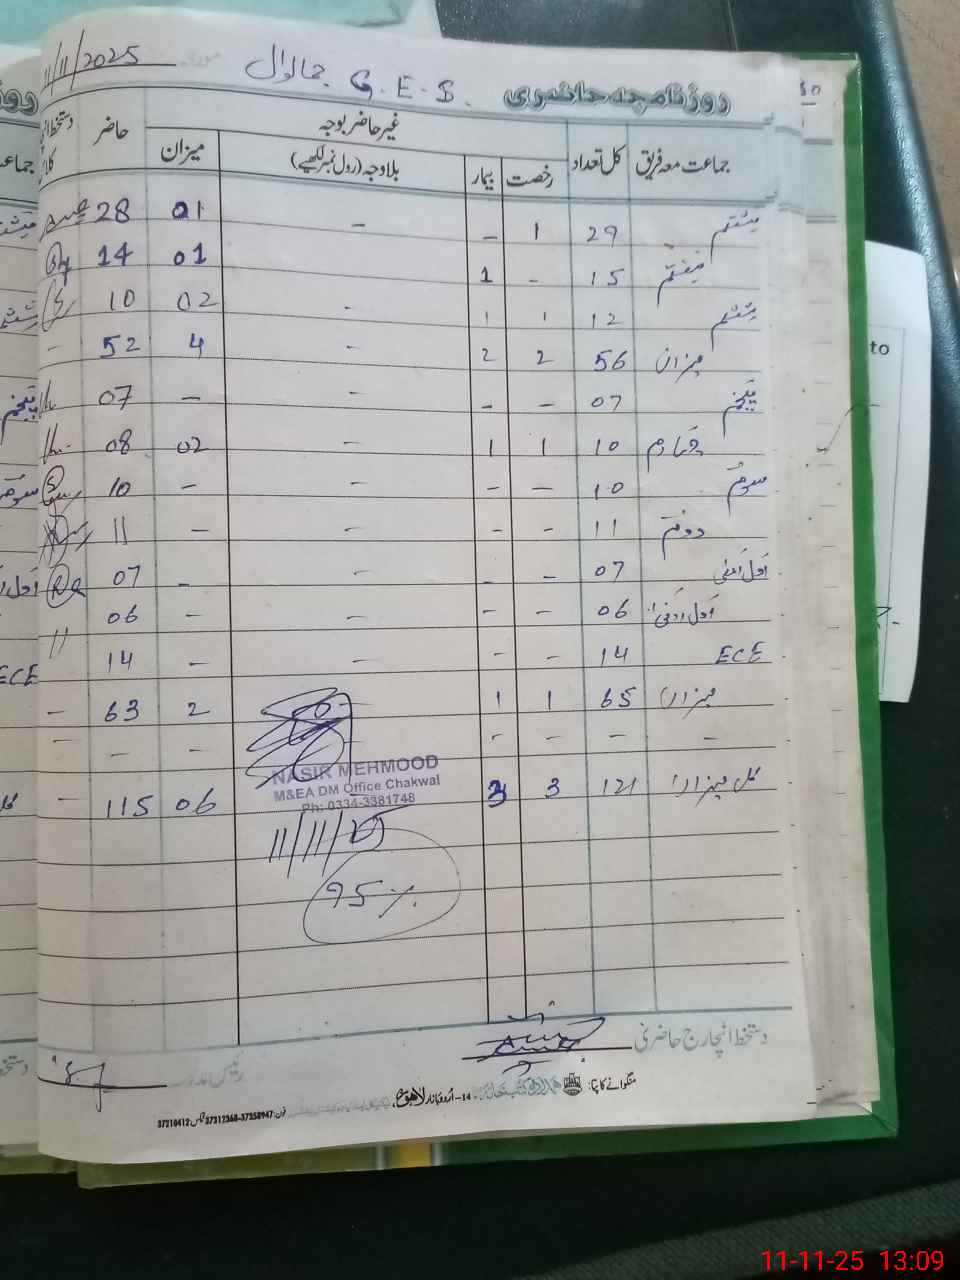 11/11/2025 مورخہ G.E.S. جمالوال
روزنامچہ حاضری
جماعت معہ فریق کل تعداد غیر حاضر بوجہ حاضر
رخصت بیمار بلاوجہ (رول نمبر لکھیے) میزان
ہشتم 29 1 - - 01 28
ہفتم 15 - 1 01 14
ششم 12 1 1 - 02 10
میزان 56 2 2 - 4 52 -
پنجم 07 - - - - 07
چہارم 10 1 1 - 02 08
سوئم 10 - - - - 10
دوئم 11 - - - - 11
اول اعلیٰ 07 - - - - 07
اول ادنیٰ 06 - - - - 06
ECE 14 - - - - 14 11
میزان 65 1 1 2 63 -
- - - - - - -
کل میزان 121 3 3 - 06 115 -
NASIR MEHMOOD
M&EA DM Office Chakwal
Ph: 0334-3381748
11/11/25
95%
دستخط انچارج حاضری
منگوانے کا پتا: 14-اردو بازار لاہور
فون: 37312368-37358947 فیکس: 37210412
to
ECE
11-11-25 13:09